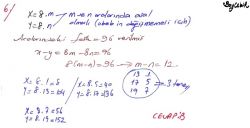 6)
x=8.m
y=8.n
m ve n aralarında asal
olmalı (obeb in değişmemesi için)
Aralarındaki fark=96 verilmiş
x-y=8m-8n=96
8(m-n)=96 → m-n=12
x=8.1=8
y=8.13=104
x=8.5=40
y=8.17=136
13 1
17 5
19 7
3 tane
x=8.7=56
y=8.19=152
CEVAP:B